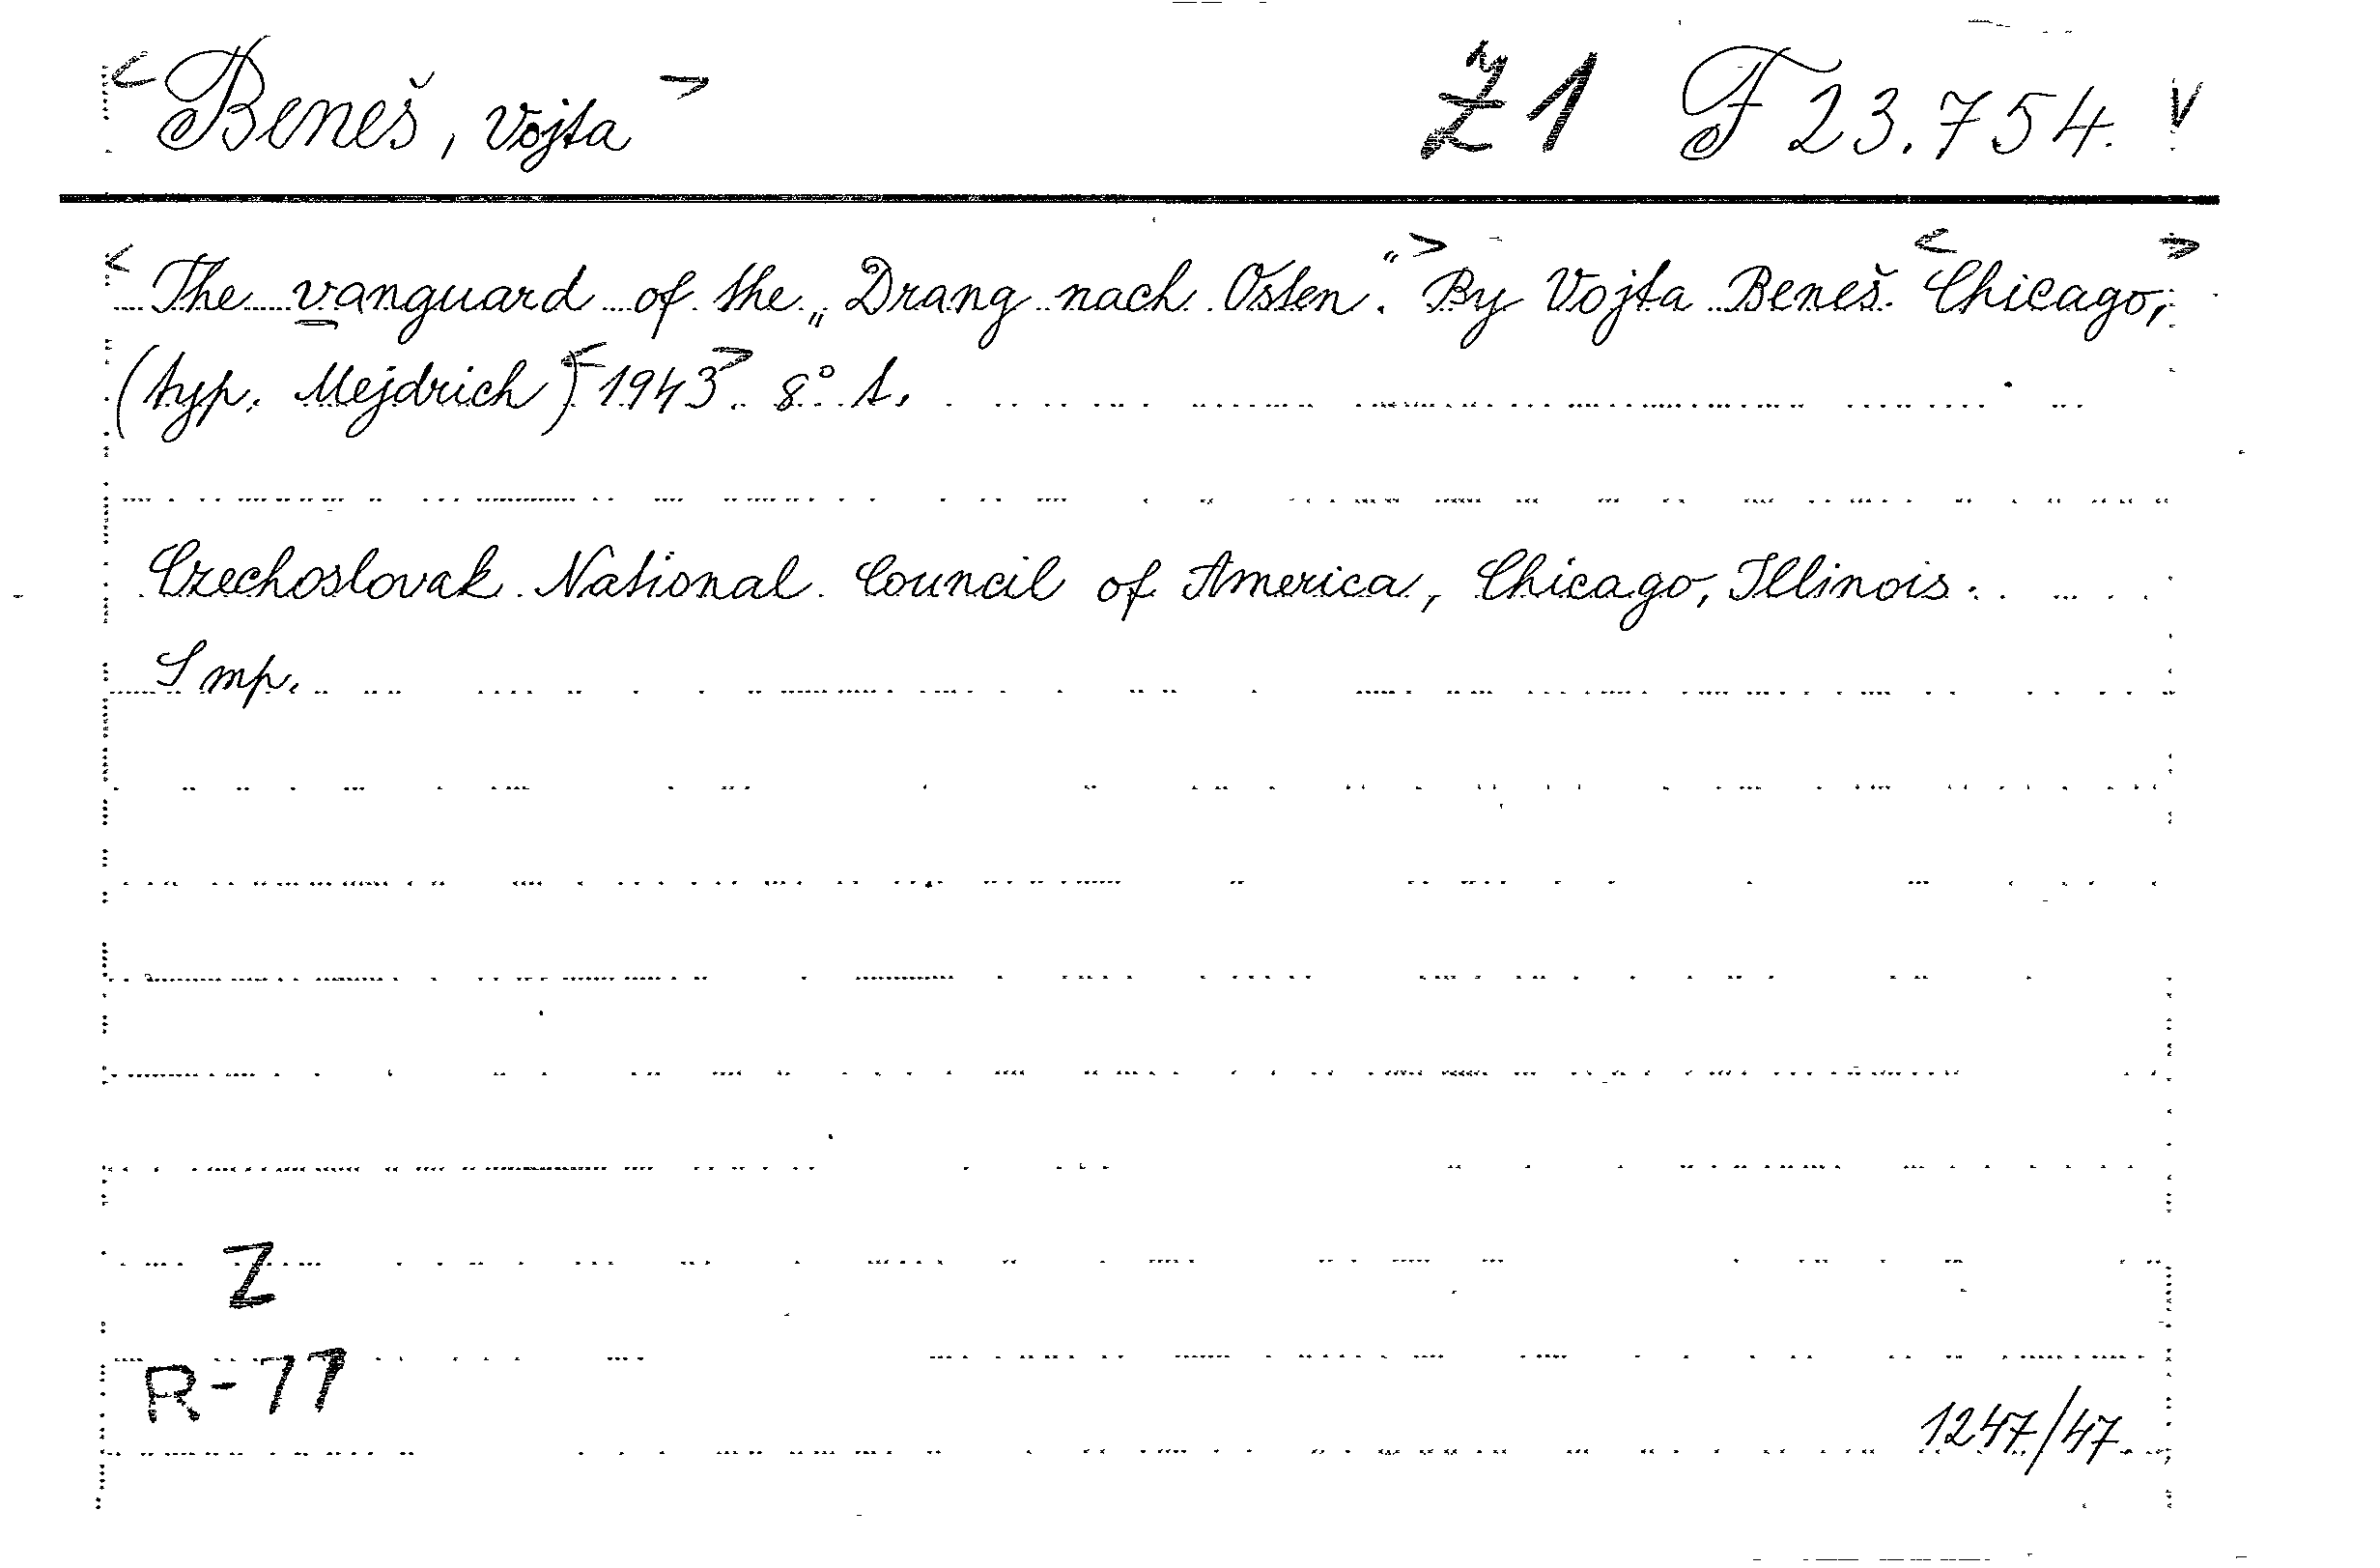 <Beneš, Vojta> Ž1 F 23.754. V
<The vanguard of the „Drang nach Osten.“> By Vojta Beneš. <Chicago,>
(typ. Mejdrich) <1943>. 8° t.
Czechoslovak National Council of America, Chicago, Illinois.
Imp.
Z
R-77
1247/47.